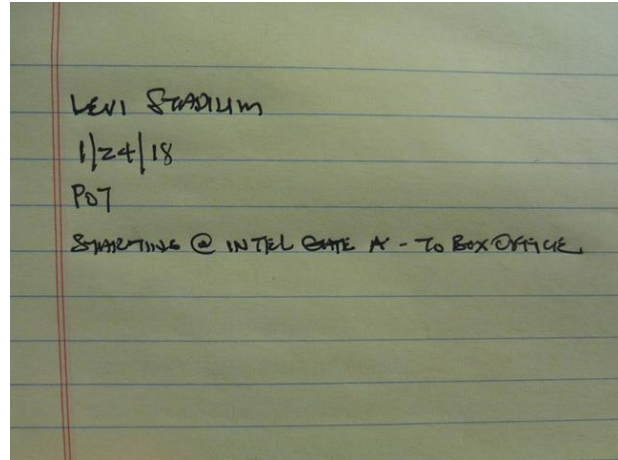 LEVI STADIUM
1/24/18
P07
STARTING @ INTEL GATE A - TO BOX OFFICE